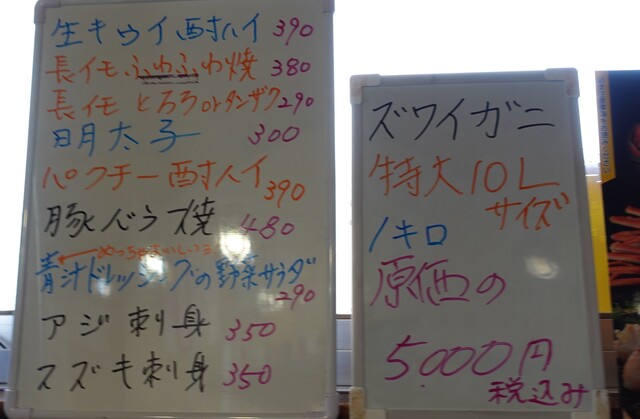 生キウイ酎ハイ 390
長イモふわふわ焼 380
長イモ とろろorタンザク 290
明太子 300
パクチー酎ハイ 390
豚バラ焼 480
青汁ドレッシングの野菜サラダ 290
アジ刺身 350
スズキ刺身 350
ズワイガニ
特大10L
サイズ
1キロ
原価の
5000円
税込み